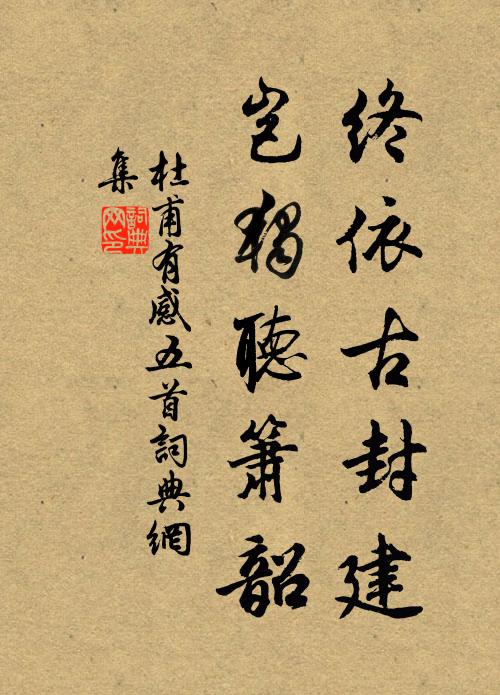 終依古封建
豈獨聽簫韶
杜甫有感五首詞典網
集
詞典網印